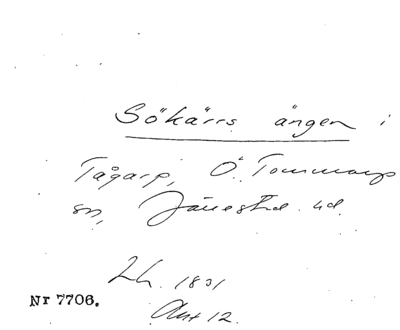 Sökärrs ängen i
Tågarp, Ö. Tommarp
sn, Järrestad hd.
Lh. 1801
Akt 12.
Nr 7706.